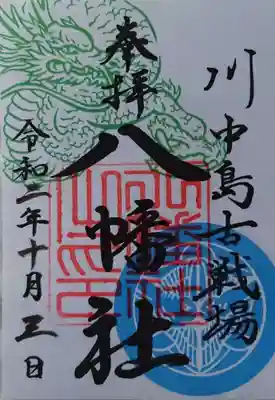 川中島古戦場
奉拝
八幡社
令和二年十月三日